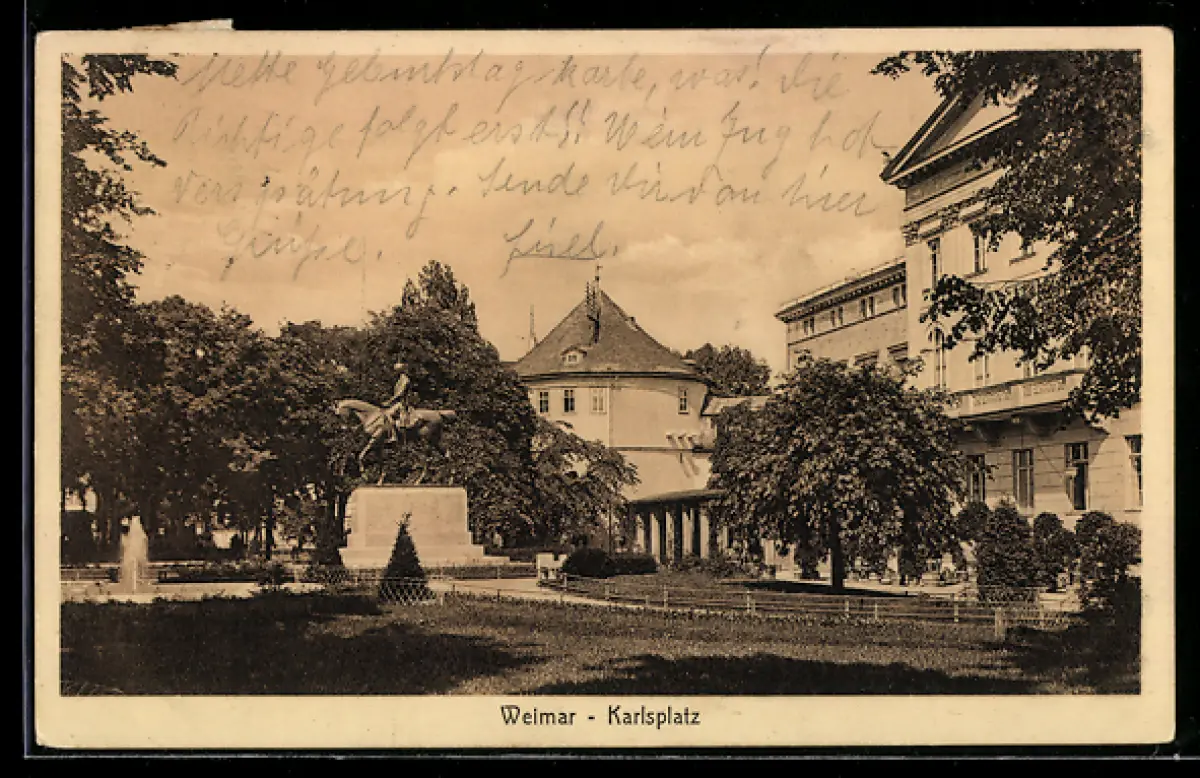 Nette Geburtstagskarte, was! Die
Richtige folgt erst!! Mein Zug hat
Verspätung. Sende Dir von hier
Grüße. Lisel.
Weimar - Karlsplatz